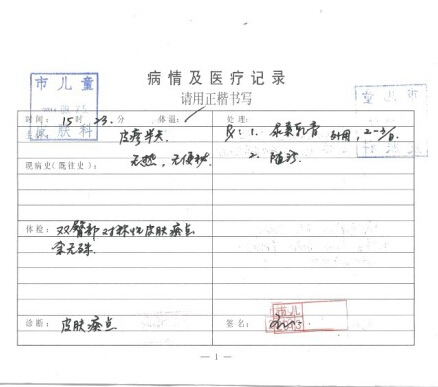 市儿童
皮肤科
病情及医疗记录
请用正楷书写
时间: 15 时 23. 分 体温:
处理:
皮疹半天
1. 尿素乳膏 外用, 2-3/日
无热, 无便秘
2. 随诊
现病史(既往史):
体检: 双臀部对称性皮肤瘀点
余无殊
诊断: 皮肤瘀点
签名:
市儿
— 1 —